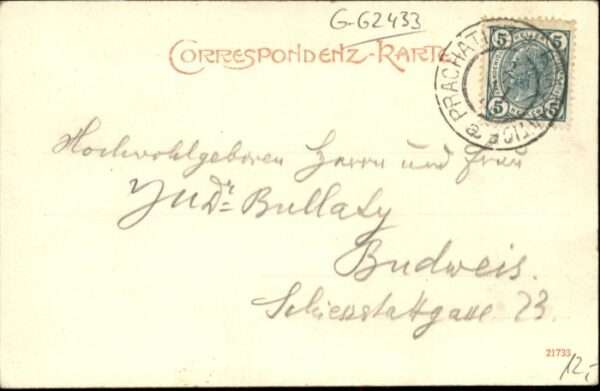 G-G2433
CORRESPONDENZ-KARTE
5 5
5 5
PRACHATI
Hochwohlgeboren Herrn und Frau
JUDr Bullaty
Budweis.
Schiesstattgasse 23.
21733
12,-